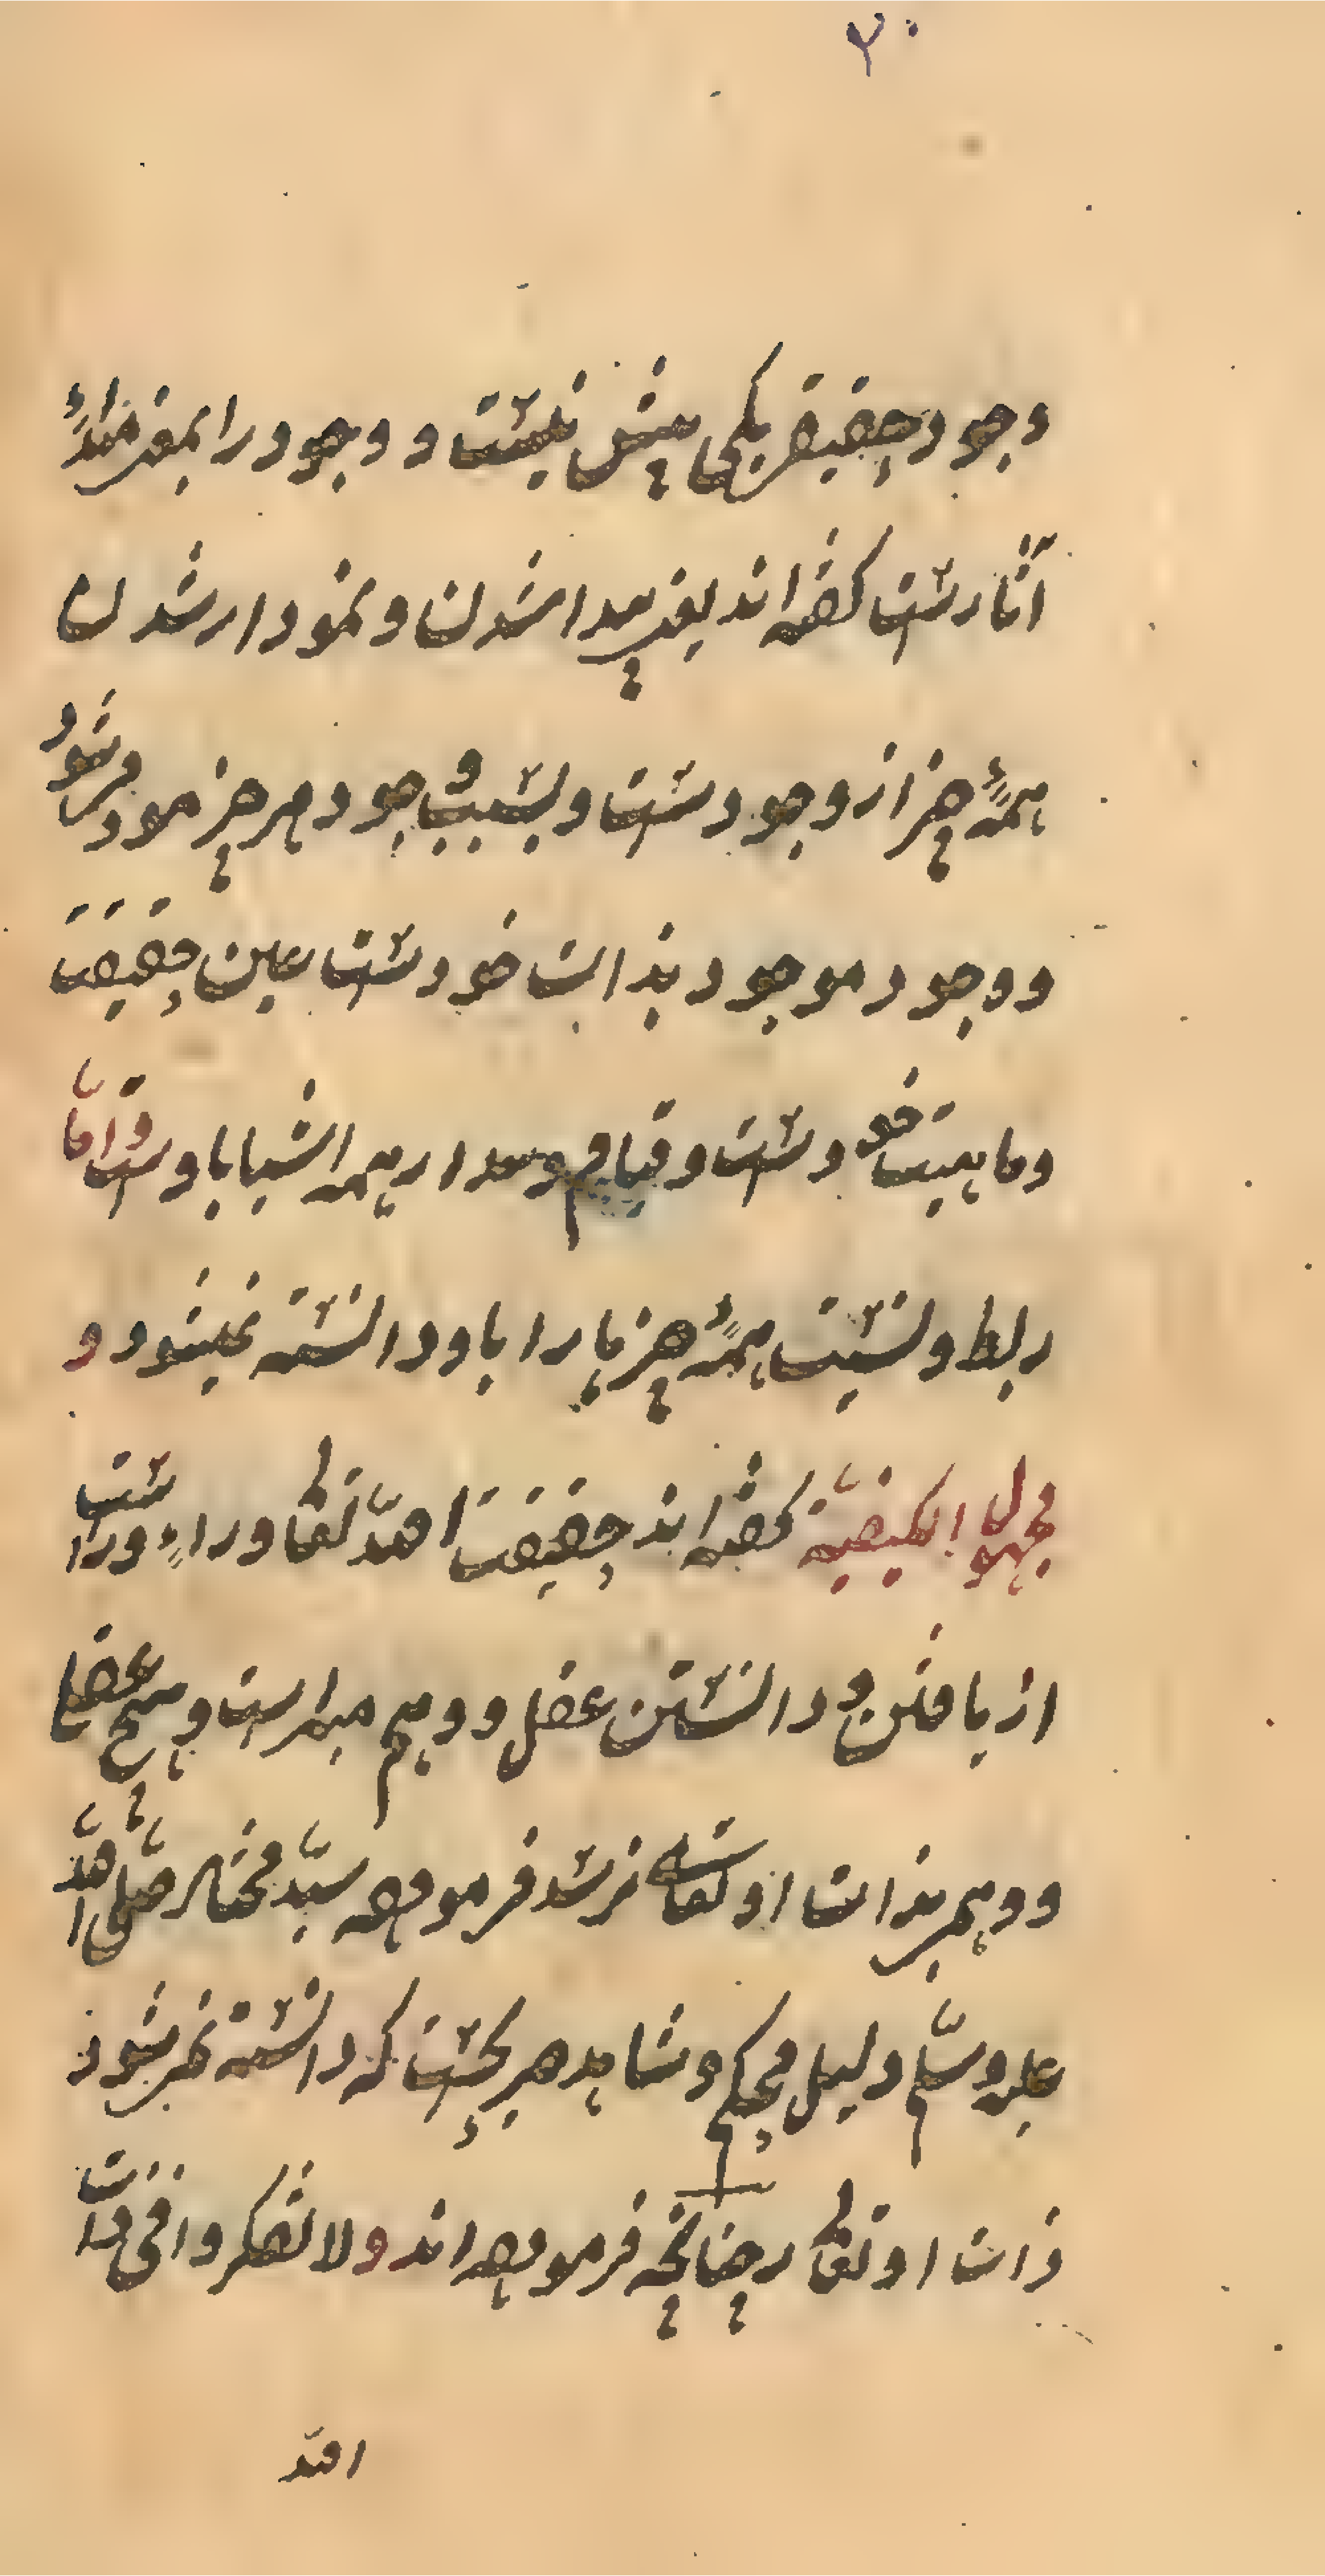 ۲۰
وجود حقیقی یکی بیش نیست و وجود را بمعنی مبداء
آثارست گفته اند یعنی پیدا شدن و نمودار شدن
همهٔ چیز از وجودست و بسبب وجود هر چیز موجود میشود
و وجود موجود بذات خودست عین حقیقت
و ماهیت خودست و قیام و مدار همه اشیا باوست و اما
ربط و نسبت همهٔ چیزها را باو دانسته نمیشود و
مجهول الکیفیة گفته اند حقیقت الله تعالی وراء وراست
از یافتن و دانستن عقل و وهم مبراست و هیچ عقلی
و وهمی بذات او تعالی نرسد فرموده سید مختار صلی الله
علیه وسلم دلیل محکم و شاهد صریحست که دانسته نمی شود
ذات او تعالی چنانچه فرموده اند و لا تفکروا فی ذات
الله